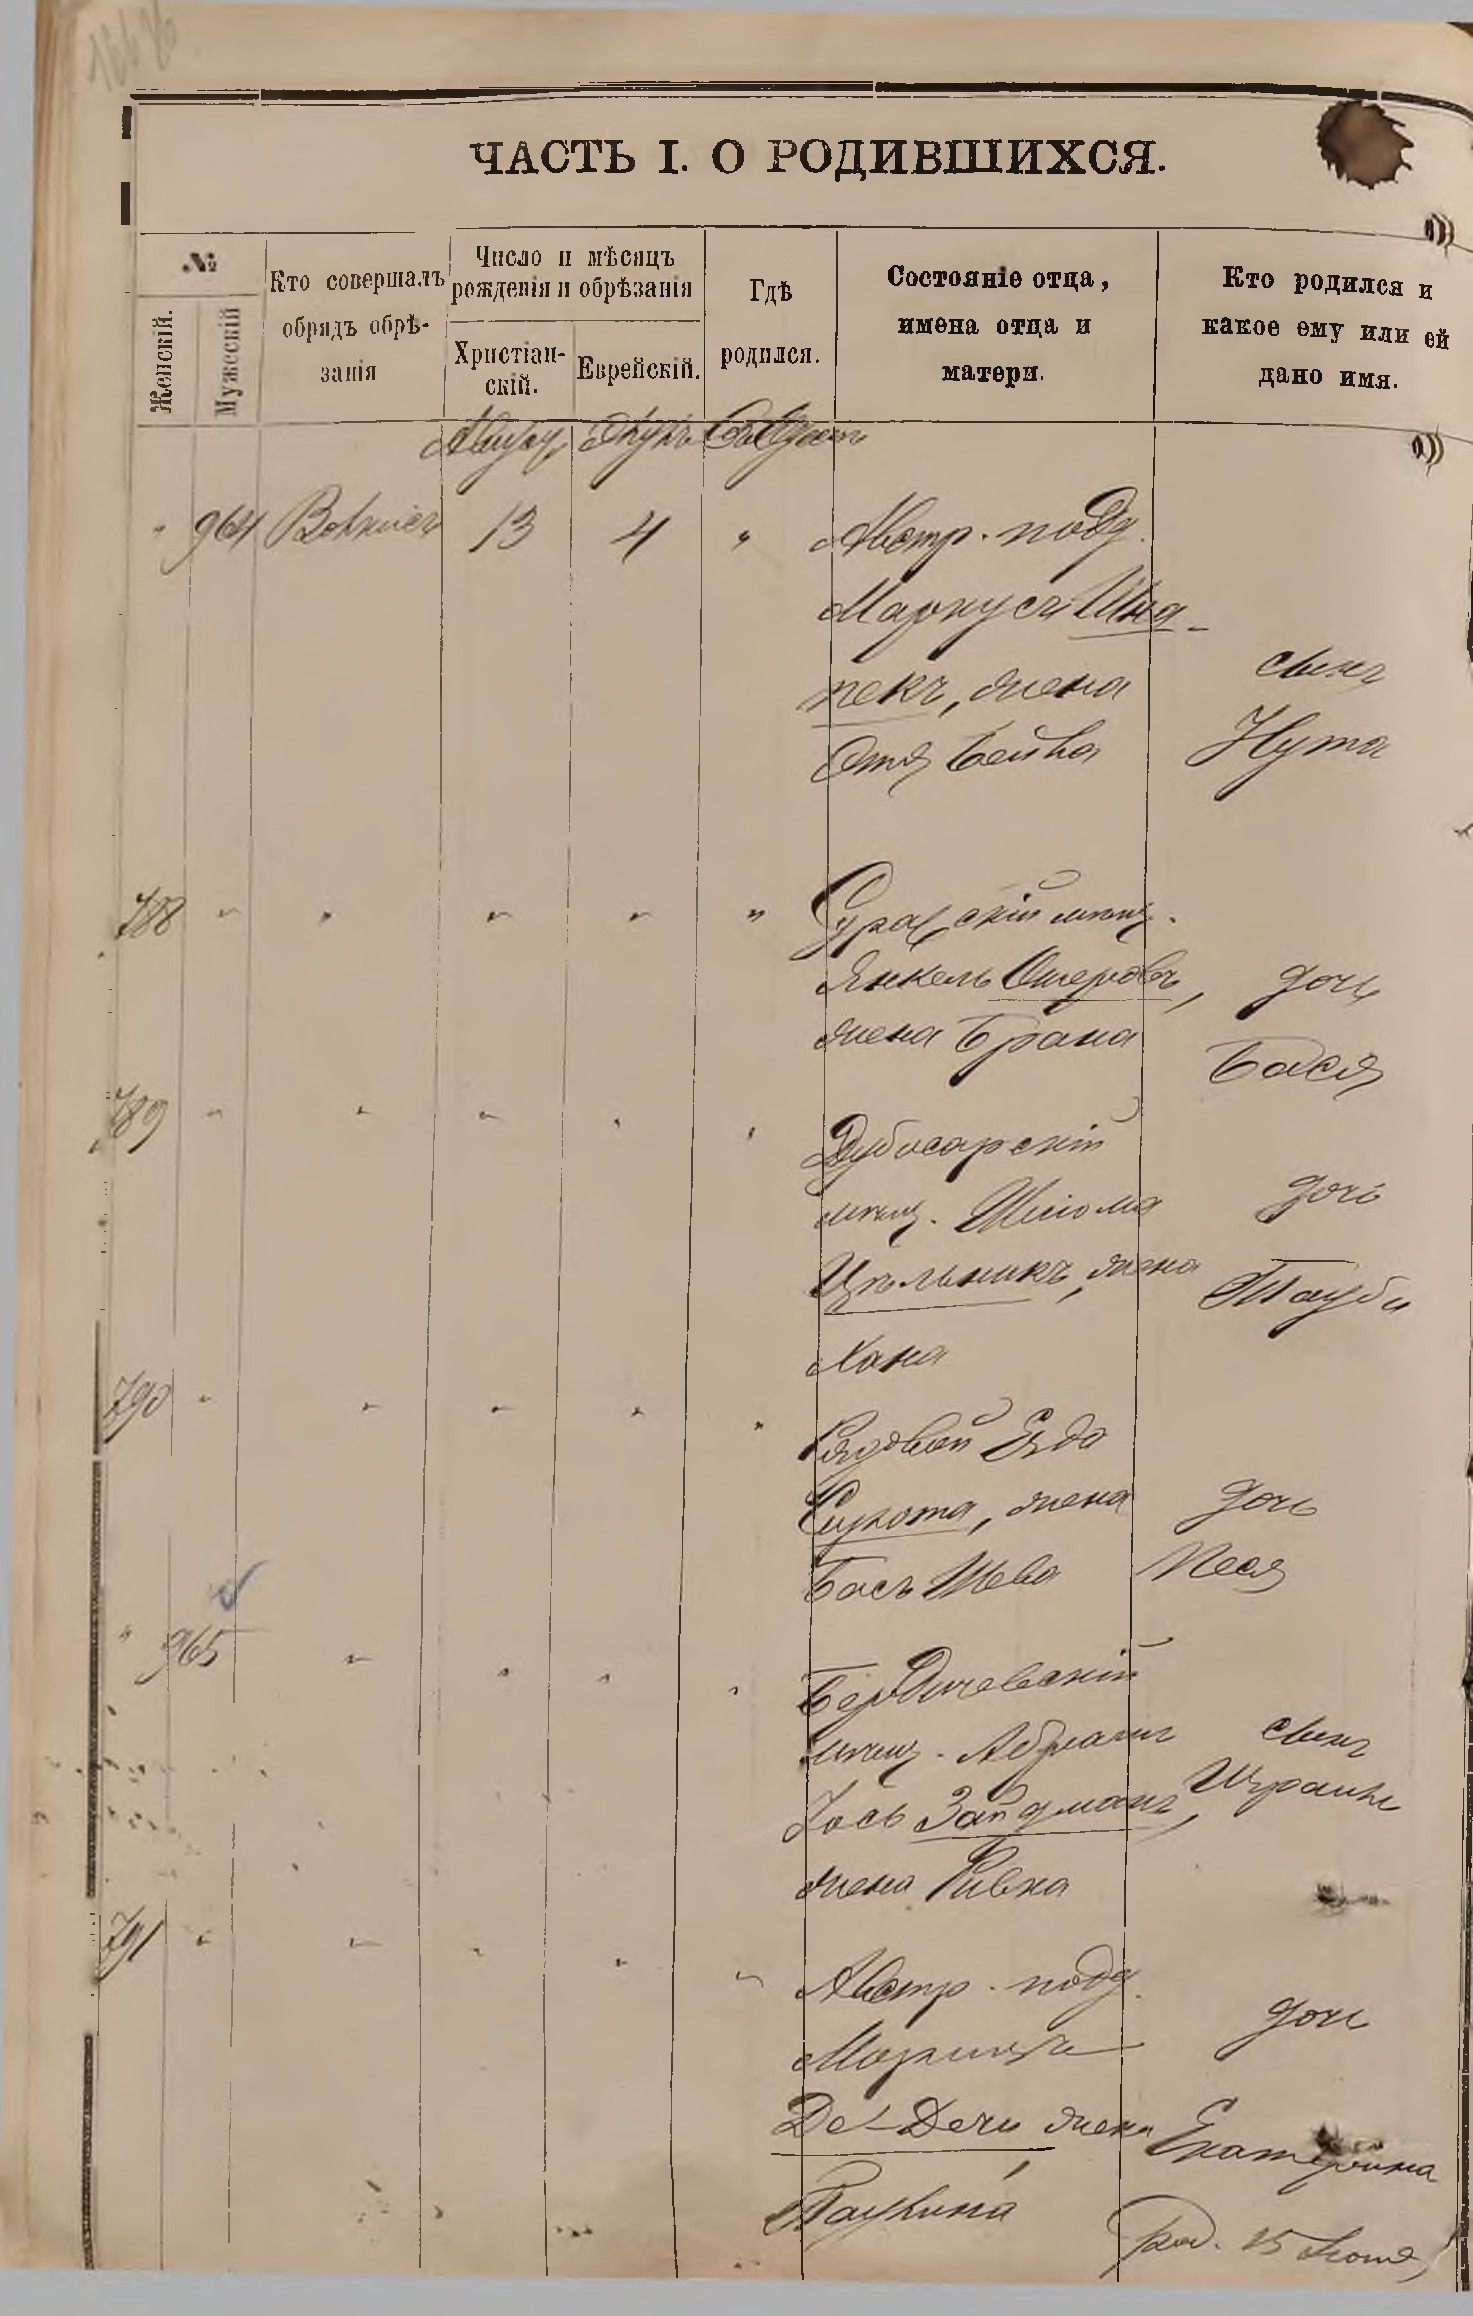 ЧАСТЬ I. О РОДИВШИХСЯ.
№
Женскій.
Мужескій
Кто совершалъ
обрядъ обрѣ-
занія
Число и мѣсяцъ
рожденія и обрѣзанія
Христіан-
скій.
Еврейскій.
Гдѣ
родился.
Состояніе отца,
имена отца и
матери.
Кто родился и
какое ему или ей
дано имя.
964
13
4
Австр. подд.
Маркусъ Шна-
пекъ, жена
Этя Бейва
сынъ
Нута
788
мѣщ.
Янкель Ошеровъ,
жена Брана
дочь
Бася
789
Дубосарскій
мѣщ. Шліома
Цѣльникъ, жена
Хана
дочь
Тауби
790
Рядовой
жена
Бася Шева
дочь
Песя
965
Бердичевскій
мѣщ. Абрамъ
Іось Зайдманъ,
жена Ривка
сынъ
Израиль
791
Австр. подд.
Морицъ
Де-Дечи жена
Паулина
дочь
Екатерина
род. 15 Іюня